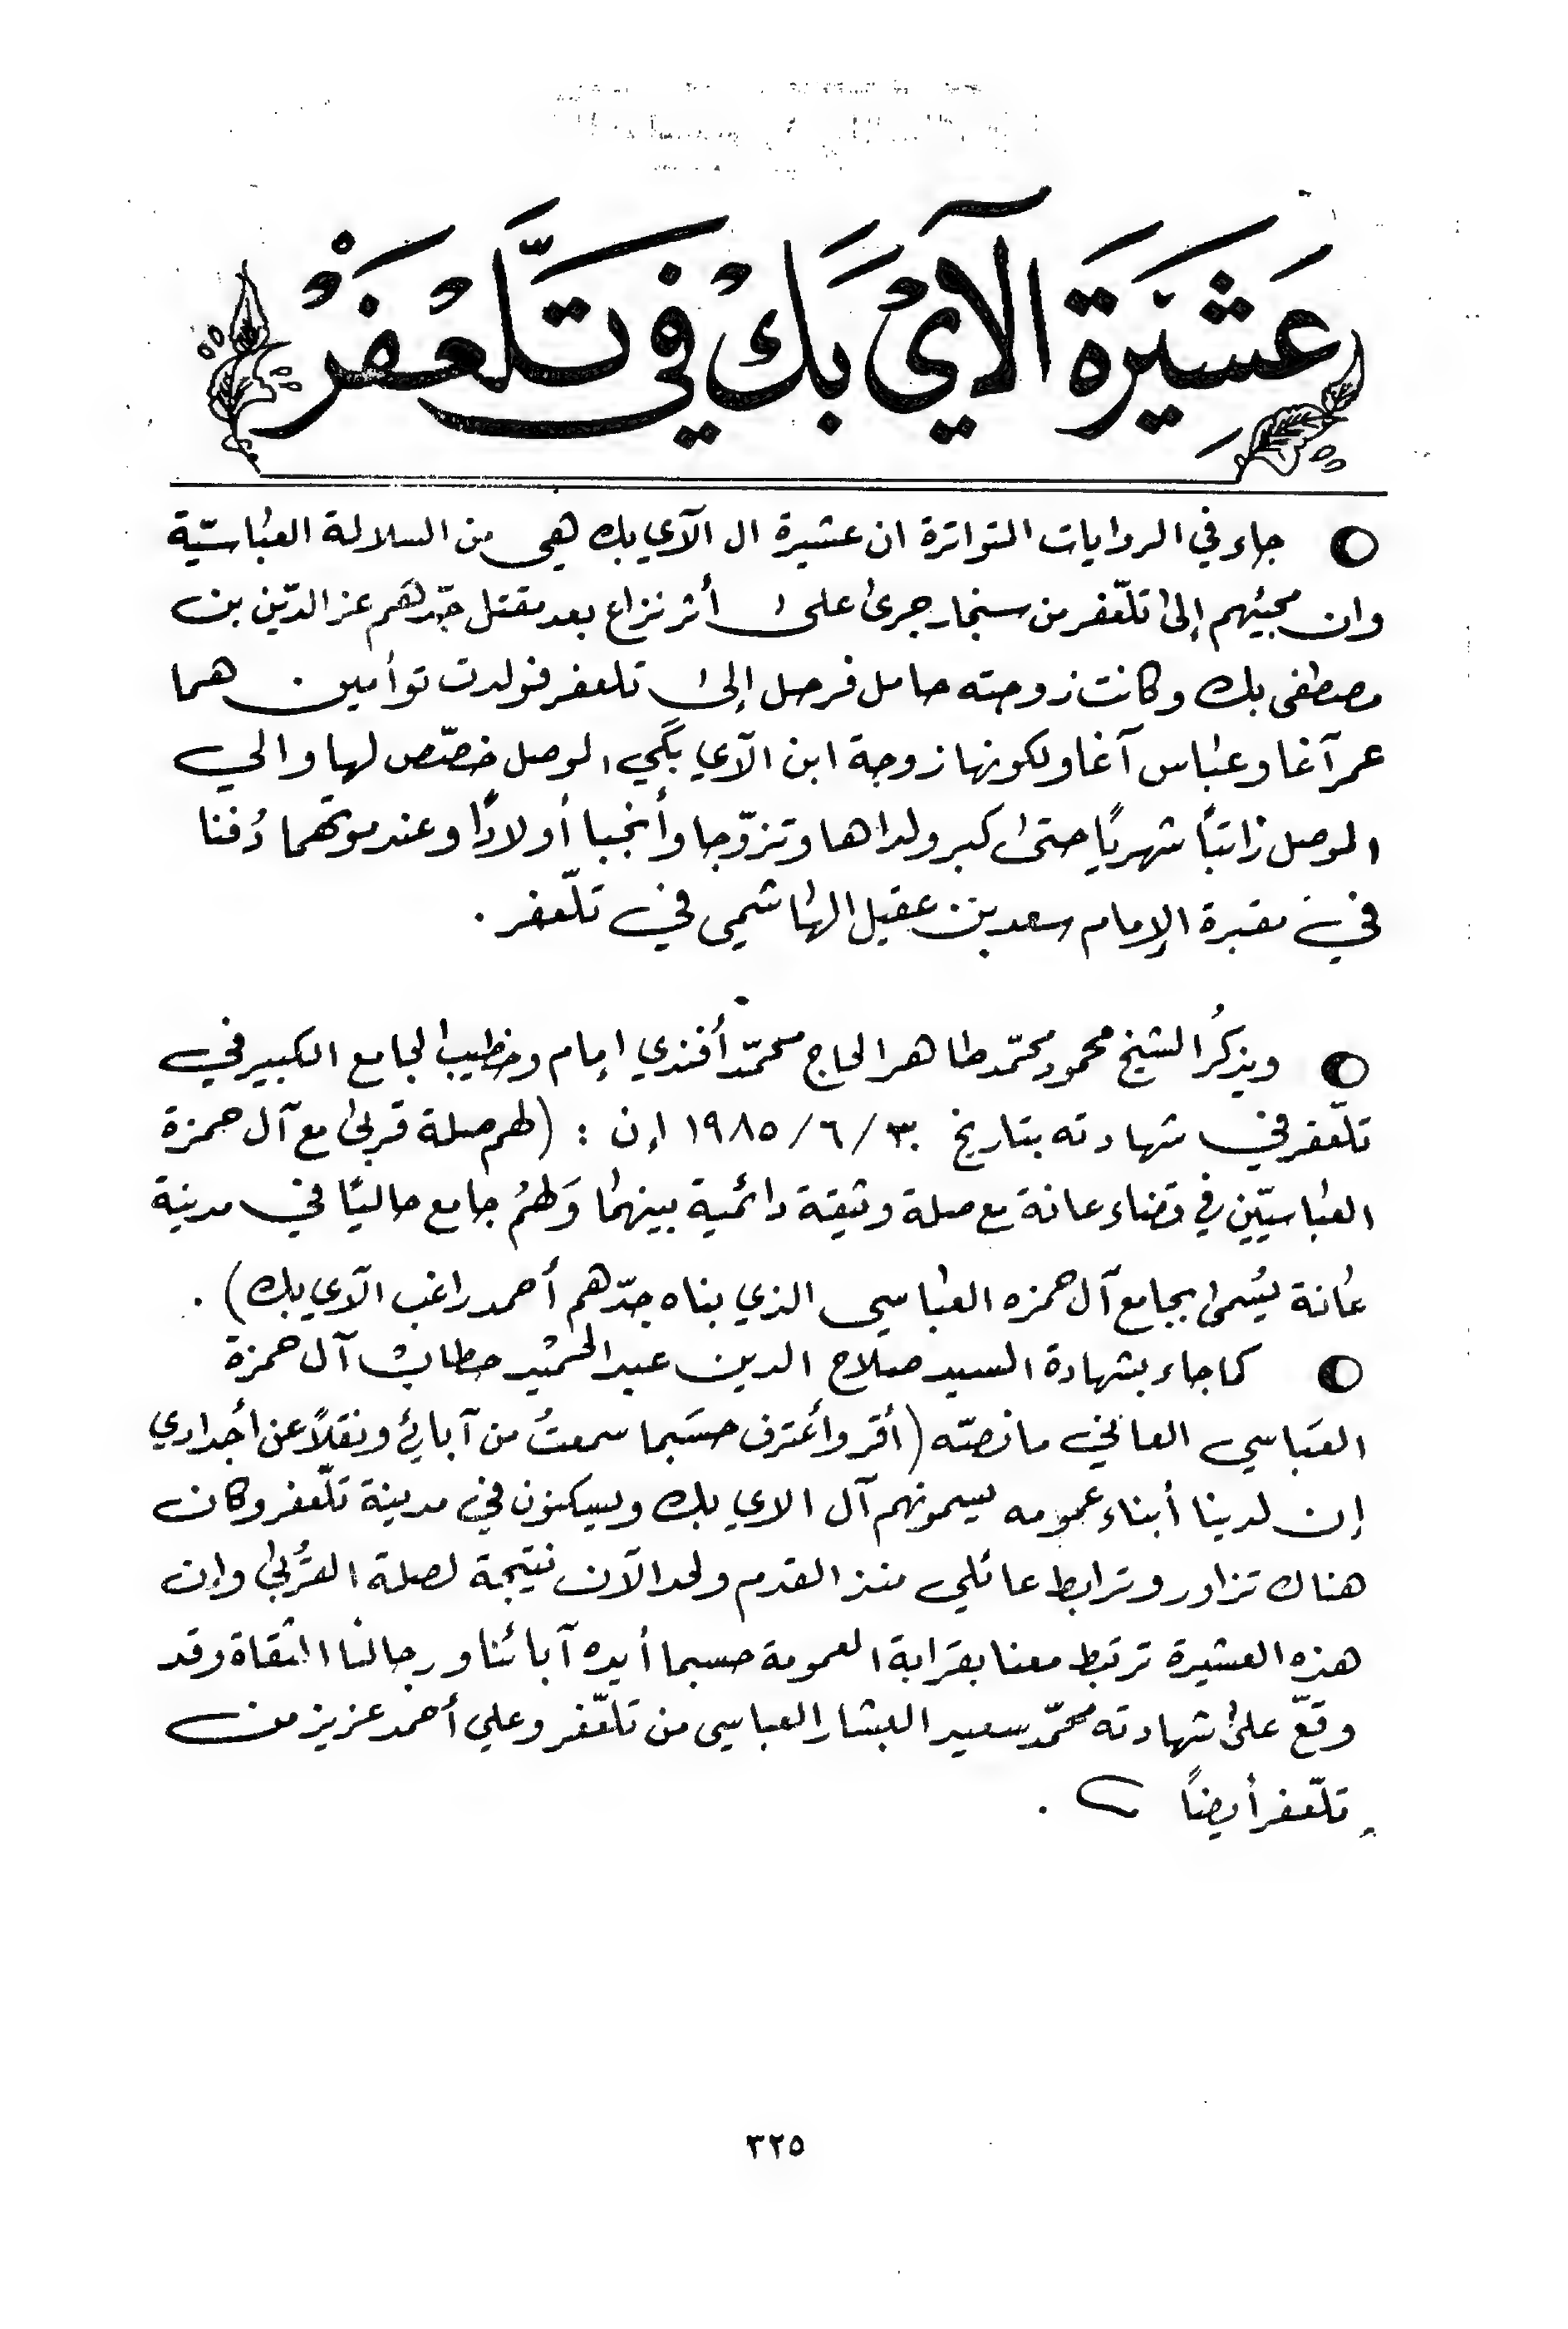 عَشِيْرَة الآيْ بَكْ في تَلَّعْفَرْ
جاء في الروايات المتواترة ان عشيرة ال الآي بك هي من السلالة العبّاسيّة
وان مجيئهم إلى تلّعفر من سنجار جرى على أثر نزاع بعد مقتل جدّهم عز الدّين بن
مصطفى بك وكانت زوجته حامل فرحل إلى تلعفر فولدت توأمين هما
عمر آغا وعباس آغا ولكونها زوجة ابن الآي بكَي الموصل خصّص لها والي
الموصل راتباً شهرياً حتى كبر ولداها وتزوّجا وأنجبا أولادًا وعند موتهما دُفنا
في مقبرة الإمام سعد بن عقيل الهاشمي في تلّعفر .
ويذكرُ الشيخ محمود محمّد طاهر الحاج محمّد أفندي إمام وخطيب الجامع الكبير في
تلّعفر في شهادته بتاريخ ٣٠/٦/١٩٨٥ إن : (لهم صلة قربى مع آل حمزة
العباسيّين في قضاء عانة مع صلة وثيقة دائمية بينهما وَلهُم جامع حاليًا في مدينة
عانة يُسمى بجامع آل حمزه العباسي الذي بناه جدّهم أحمد راغب الآي بك) .
كما جاء بشهادة السيد صلاح الدين عبد الحميد حطاب آل حمزة
العَباسي العاني ما نصّه (أقر وأعترف حسَبما سمعتُ من آبائي ونقلاً عن أجدادي
إن لدينا أبناء عمومه يسمونهم آل الاي بك ويسكنون في مدينة تلّعفر وكان
هناك تزاور وترابط عائلي منذ القدم ولحد الآن نتيجة لصلة القُربى وإن
هذه العشيرة ترتبط معنا بقرابة العمومة حسبما أيده آبائنا ورجالنا الثقاة وقد
وقّع على شهادته محمّد سعيد البشار العباسي من تلّعفر وعلي أحمد عزيز من
تلّعفر أيضاً .
٣٢٥